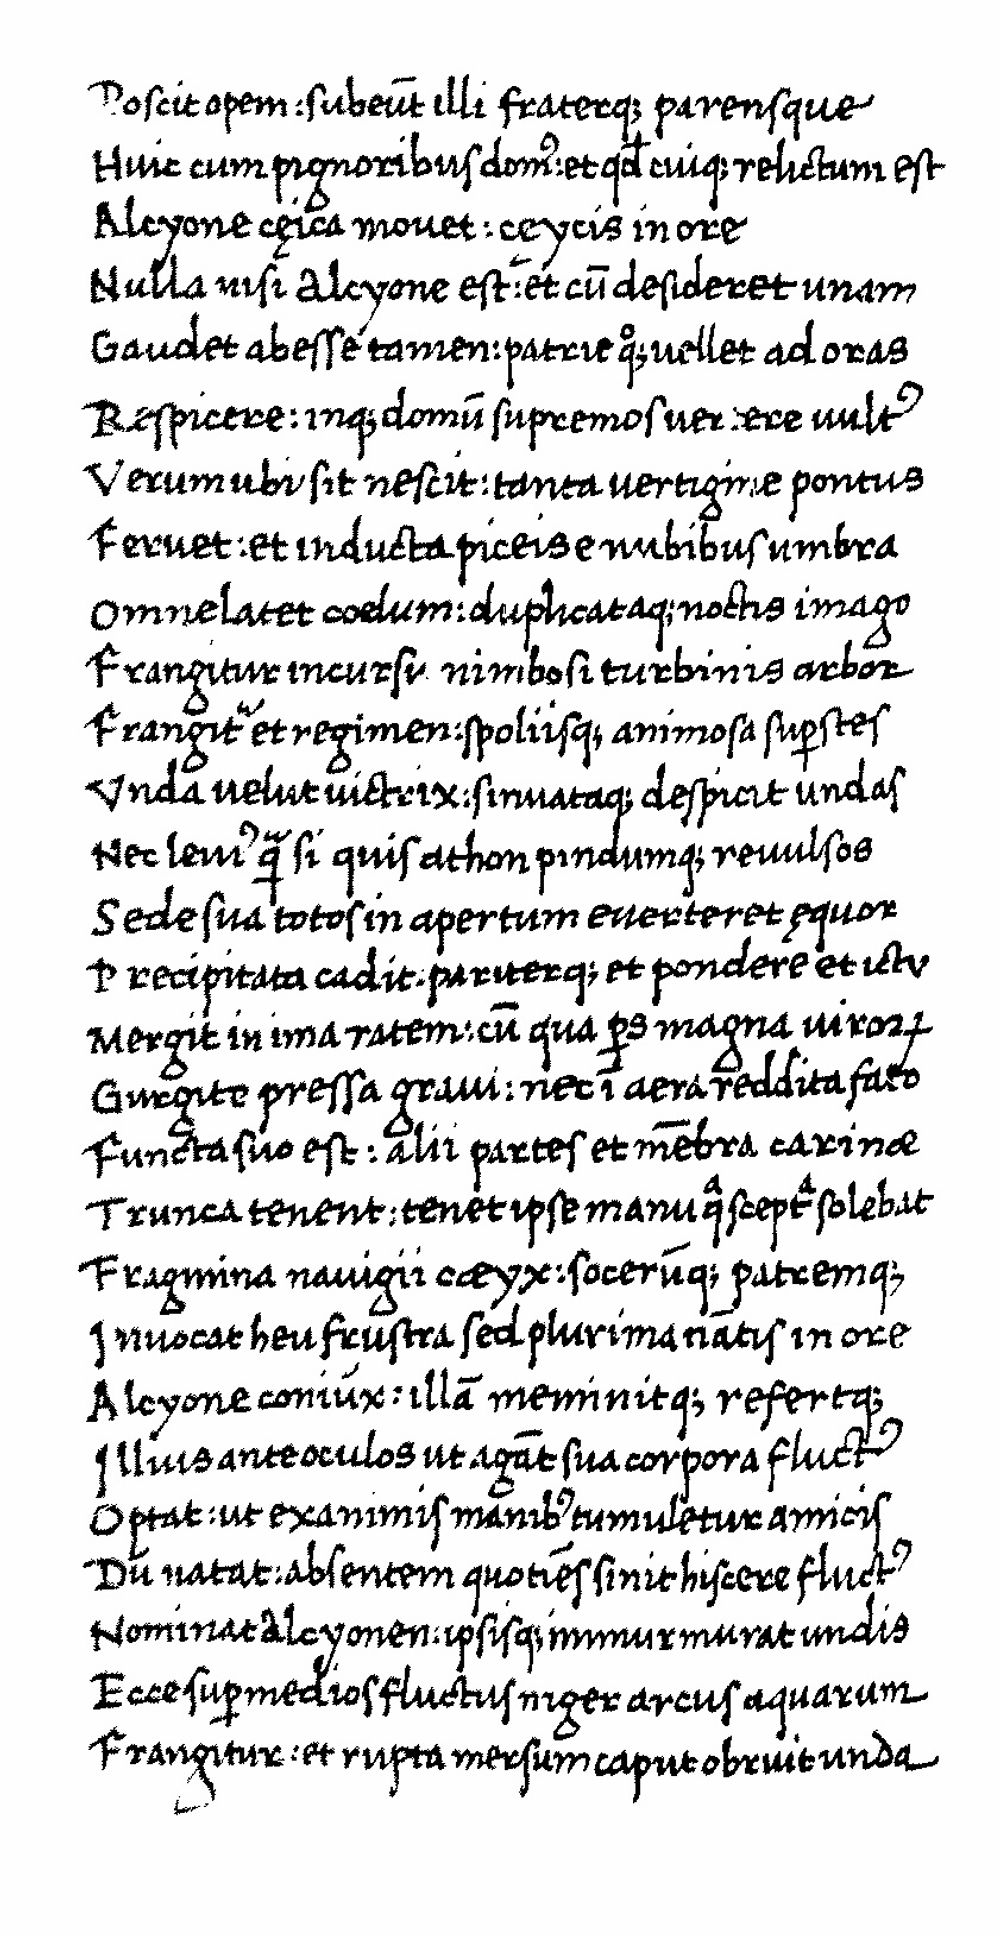 Poscit opem : subeūt illi fraterq; parensque
Huic cum pignoribus domꝰ: et qđ cuiq; relictum est
Alcyone cęica mouet : cęycis in ore
Nulla nisi Alcyone est : et cū desideret unam
Gaudet abesse tamen : patrie qͦ; uellet ad oras
Respicere : inq; domū supremos uertere uultꝰ
Verum ubi sit nescit : tanta uertigine pontus
Feruet : et inducta piceis e nubibus umbra
Omne latet coelum : duplicataq; noctis imago
Frangitur incursu nimbosi turbinis arbor
Frangitᷓ et regimen : spoliisq; animosa suꝑstes
Vnda uelut uictrix : sinuataq; despicit undas
Nec leuiꝰ qᷓ si quis athon pindumq; reuulsos
Sede sua totos in apertum euerteret ęquor
Precipitata cadit . pariterq; et pondere et ictu
Mergit in ima ratem : cū qua ꝑs magna uiroꝝ
Gurgite pressa graui : nec ī aera reddita fato
Functa suo est : alii partes et mēbra carinæ
Trunca tenent : tenet ipse manu qͣ sceptͣ solebat
Fragmina nauigii cæyx : socerūq; patremq;
Inuocat heu frustra sed plurima nātis in ore
Alcyone coniux : illā meminitq; refertq;
Illius ante oculos ut agāt sua corpora fluctꝰ
Optat : ut exanimis manibꝰ tumuletur amicis
Dū natat : absentem quotiēs sinit hiscere fluctꝰ
Nominat Alcyonen : ipsisq; immurmurat undis
Ecce suꝑ medios fluctus niger arcus aquarum
Frangitur : et rupta mersum caput obruit unda